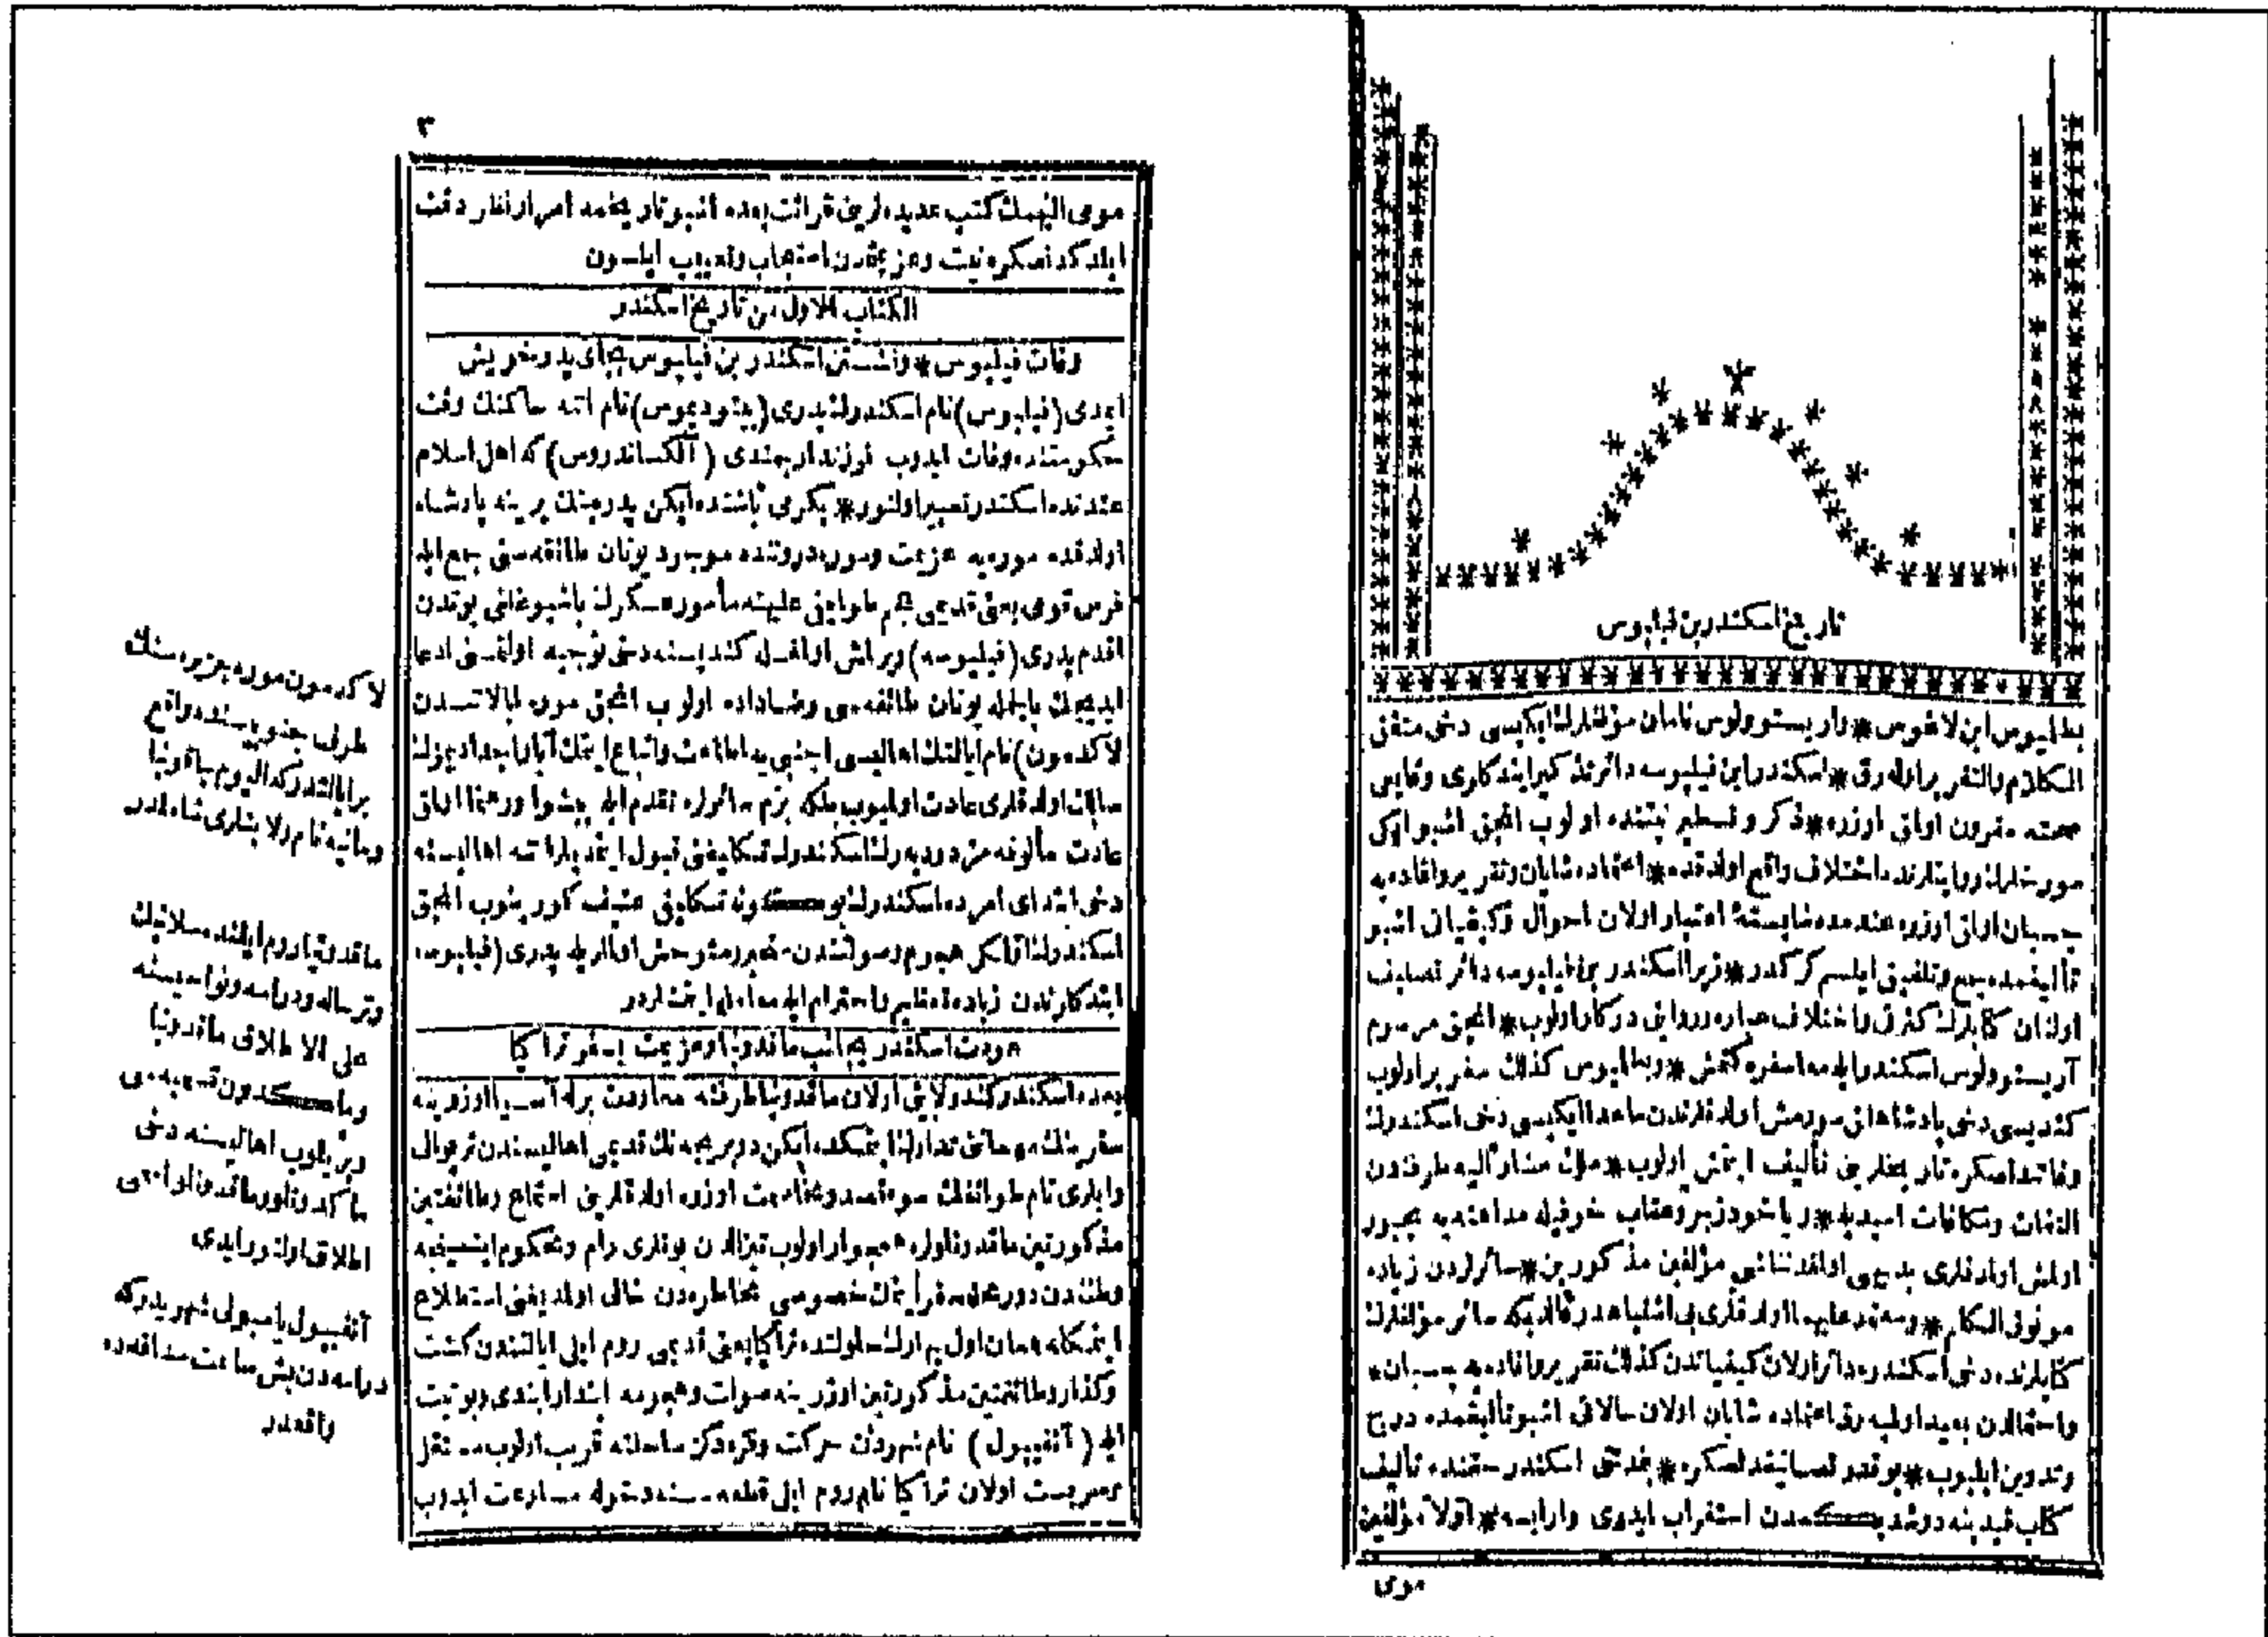 تاریخ اسکندر بن فیلپوس
بطلمیوس ابن لاغوس * واریستوولوس نامان مؤلفلرك ایکیسی دخی متفق
الکلام والتقریر اوله رق * اسکندر ابن فیلپوسه دائر تذکیر ایتدکلری وقایعی
صحته مقرون اولمق اوزره * ذکر و تسطیر نیتنده اولوب انجق اشبو ایکی
مورخلرك روایتلرنده اختلاف واقع اولدقده * اعتماده شایان و تقریر و افاده یه
چسبان اولمق اوزره عندمده شایستۀ اعتبار اولان احوال و کیفیاتی اشبو
تألیفمده جمع و تلفیق ایلسم کرکدر * زیرا اسکندر بن فیلپوسه دائر تصنیف
اولنان کتابلرك کثرتی و اختلاف عباره و روایتی درکار اولوب * انجق مرسوم
آریستوولوس اسکندر ایله معا سفره کتمش * و بطلمیوس کذلك سفربر اولوب
کندیسی دخی پادشاهلق سورمش اولدقلرندن ماعدا ایکیسی دخی اسکندرك
وفاتندنصکره تاریخلرینی تألیف ایتمش اولوب * ملك مشار الیه طرفندن
التفات و مکافات امیدیله * و یاخود زجر و عقاب خوفیله مداهنه یه مجبور
اولمش اولمدقلری بدیهی اولمغدن ناشی مؤلفین مذکورین * سائرلردن زیاده
موثوق الکلم * و معتمد علیهما اولدقلری بی اشتباهدر قالدیکه سائر مؤلفلرك
کتابلرنده دخی اسکندره دائر اولان کیفیاتدن کذلك تقریر و افاده یه چسبان *
واحتمالدن بعید اولمیه رق اعتماده شایان اولان حالاتی اشبو تألیفمده درج
وتدوین ایلیوب * بو قدر تصانیفدنصکره * بنم دخی اسکندر حقنده تألیف
کتاب قیدینه دوشدیکمدن استغراب ایدری وار ایسه * اولا مؤلفین
مومی
٣
مومی الیهمك کتب عدیده لرین قرائت بعده اشبو تاریخمه امرار انظار دقت
ایلدکدنصکره نیت و عزیمتمدن استعجاب و تعییب ایلسون
الکتاب الاول من تاریخ اسکندر
وفات فیلپوس * و نشستن اسکندر بن فیلپوس بجای پدر خویش
ایمدی (فیلپوس) نام اسکندرك پدری (پیتودیموس) نام اتنه حاکمنك وقت
حکومتنده وفات ایدوب فرزند ارجمندی (آلکساندروس) که اهل اسلام
عندنده اسکندر تعبیر اولنور * یکرمی یاشنده ایکن پدرینك یرینه پادشاه
اولدقده موره یه عزیمت و موره دروننده موجود یونان طائفه سنی جمع ایله
فرس قومی یعنی قدیمی عجم طوایفی علیهنه مأمور عسکرك باشبوغلغی بوندن
اقدم پدری (فیلپوسه) ویرلمش اولمغله کندیسنه دخی توجیه اولنمسنی ادعا
ایدیجك بالجمله یونان طائفه سی رضاداده اولوب انجق موره ایالاتندن
(لاکدمون) نام ایالتك اهالیسی اجنبی یه اطاعت و اتباع ایتمك آبا و اجدادیمزك
عادت اولدقلری عادت اولمیوب بلکه بزم سائرلره تقدم ایله پیشوا و رهنما اولمق
عادت مألوفه مزدر دیه رك اسکندرك تکلیفنی قبول ایتمدیلر اتنه اهالیسنه
دخی ابتدای امرده اسکندرك بو گونه تکلیفی عنیف کورینوب انجق
اسکندرك هجوم و صولتندن متحیر و متوحش اولملریله پدری (فیلپوسه)
ایتدکلرندن زیاده تعظیم و احترام ایله معامله ایتمشلردر
عودت اسکندر بجانب ماقدونیا و عزیمت بسفر تراکیا
بعده اسکندر کندو لایقی اولان ماقدونیا طرفنه معاودت برله آسیا اوزرینه
سفرینك مهماتنی تدارك ایتمکده ایکن قدیمی اهالیسندن تریوالی
و ایلری نام طوائفك سوء قصد اوزره اولدقلرین استماع و طائفتین
مذکورتین ماقدونلولره همجوار اولوب بونلری رام و محکوم ایتمینجه
وطنندن دور محله سفر ایتمك خصوصی مخاطره دن خالی اولمدیغنی استطلاع
ایتمکله همان اول بهارك حلولنده تراکیا یعنی قدیمی روم ایلی ایالتندن کشت
و کذار و طائفتین مذکورتین اوزرینه صولت و هجومه ابتدار ایتدی و بو نیت
ایله (آنفیپول) نام شهردن حرکت و قره دکز ساحلنه قریب اولوب مستقل
و سربست اولان تراکیا نام روم ایلی قطعه سنه دخوله مسارعت ایدوب
لاکدمون موره جزیره سنك
طرف جنوبیسنده واقع
بر ایالتدر که الیوم چاقونیا
و مانیه نام ولایتلری شاملدر
ماقدونیا روم ایلنده سلانیك
و ترساله و درامه و نواحیسنه
علی الاطلاق ماقدونیا
و ماکدون تسمیه سی
ویریلوب اهالیسنه دخی
ماکدونلو و ماقدونلو اسمی
اطلاق اولنور ایدی
آنفیپول یامبولی شهریدر که
درامه دن بش ساعت مسافه ده
واقعدر